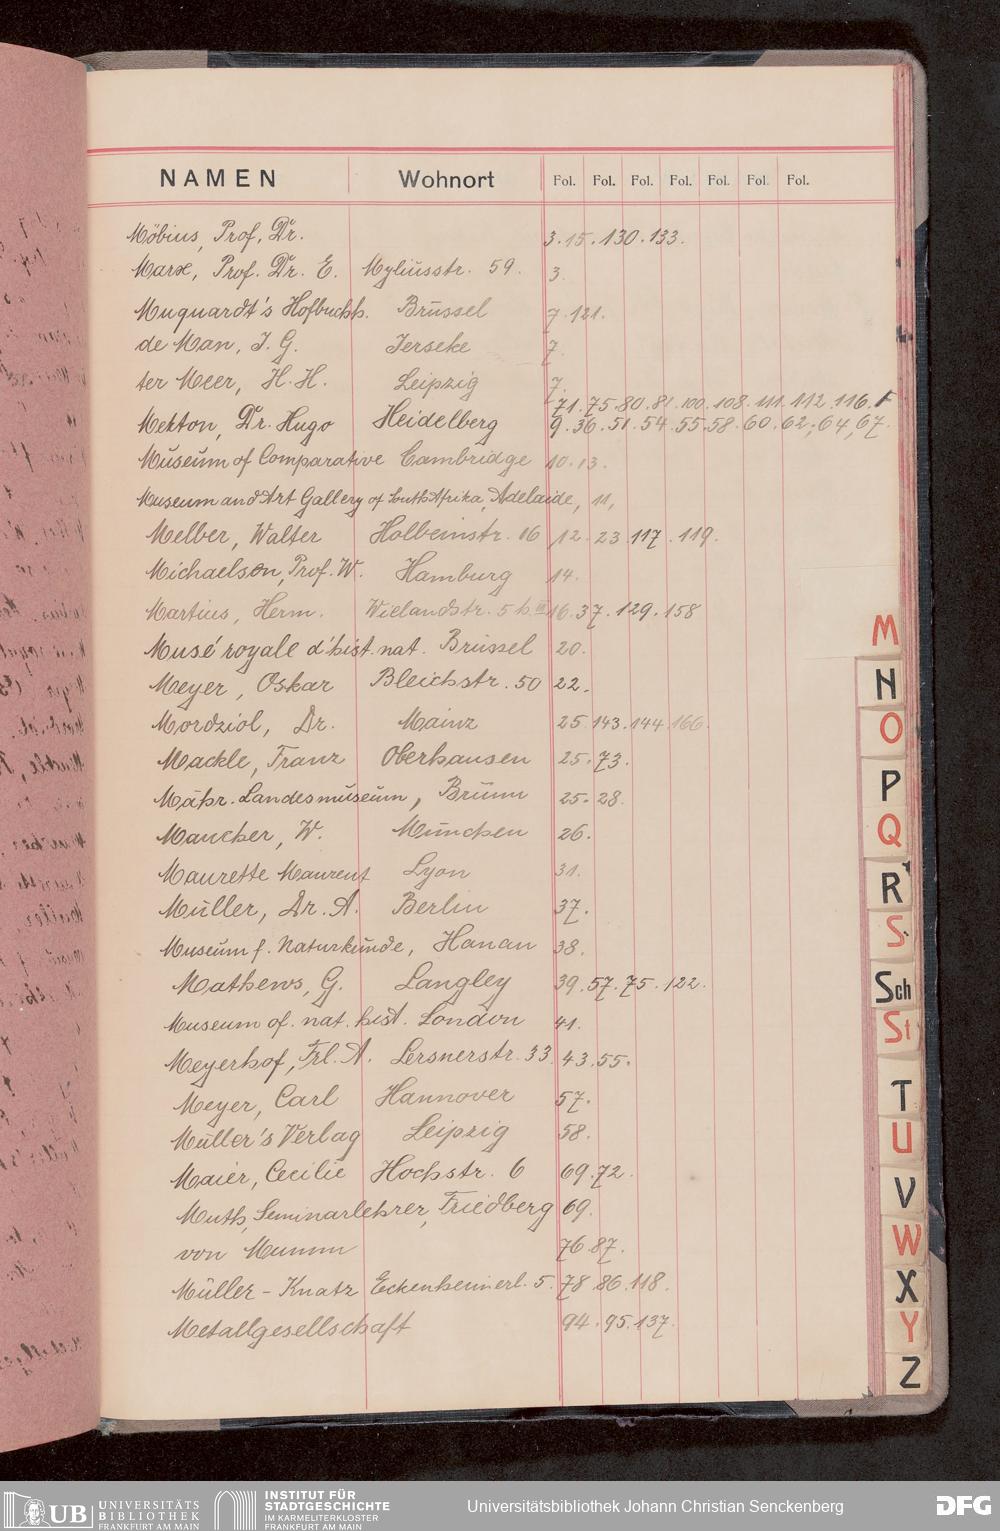 NAMEN Wohnort Fol. Fol. Fol. Fol. Fol. Fol. Fol.
Möbius, Prof. Dr. 3. 15. 130. 133.
Marx, Prof. Dr. E. Myliusstr. 59. 3.
Muquardt's Hofbuchh. Brüssel 7. 121.
de Man, J. G. Jerseke 7.
ter Meer, H. H. Leipzig 7.
71. 75. 80. 81. 100. 108. 111. 112. 116.
Merton, Dr. Hugo Heidelberg 9. 36. 51. 54. 55. 58. 60. 62, 64, 67.
Museum of Comparative Cambridge 10. 13.
Museum and Art Gallery of South Afrika, Adelaide, 11,
Melber, Walter Holbeinstr. 16 12. 23. 117. 119.
Michaelsen, Prof. W. Hamburg 14.
Martius, Herm. Wielandstr. 5 b. III 16. 37. 129. 158
Musé royale d'hist. nat. Brüssel 20.
Meyer, Oskar Bleichstr. 50 22.
Mordziol, Dr. Mainz 25. 143. 144. 166.
Mackle, Franz Oberhausen 25. 73.
Mähr. Landesmuseum, Brünn 25. 28.
Maucher, W. München 26.
Maurette Maurent Lyon 31.
Müller, Dr. A. Berlin 37.
Museum f. Naturkunde, Hanau 38.
Mathews, G. Langley 39. 57. 75. 122.
Museum of. nat. hist. London 41.
Meyerhof, Frl. A. Lersnerstr. 33. 43. 55.
Meyer, Carl Hannover 57.
Müller's Verlag Leipzig 58.
Maier, Cecilie Hochstr. 6 69. 72.
Muth, Seminarlehrer, Friedberg 69.
von Mumm 76. 87.
Müller - Knatz Eckenheimerl. 5. 78. 86. 118.
Metallgesellschaft 94. 95. 137.
M
N
O
P
Q
R
S
Sch
St
T
U
V
W
X
Y
Z
UB UNIVERSITÄTS
BIBLIOTHEK
FRANKFURT AM MAIN
INSTITUT FÜR
STADTGESCHICHTE
IM KARMELITERKLOSTER
FRANKFURT AM MAIN
Universitätsbibliothek Johann Christian Senckenberg
DFG